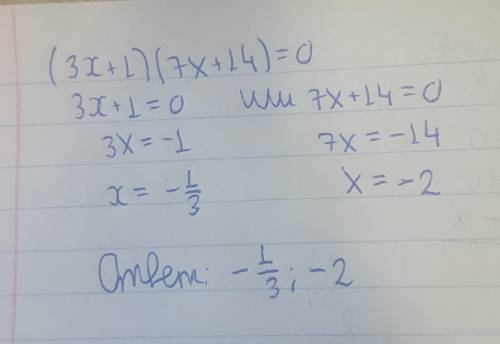 (3x+1)(7x+14)=0
3x+1=0 или 7x+14=0
3x=-1 7x=-14
x=-1/3 x=-2
Ответ: -1/3; -2